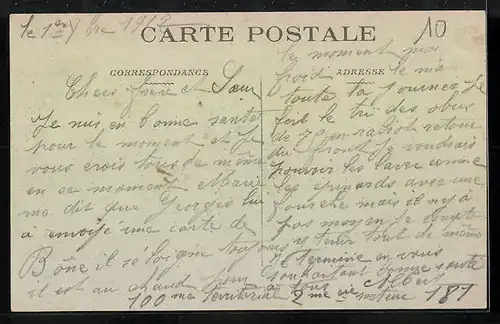 le 1er Xbre 1917
10
CARTE POSTALE
CORRESPONDANCE
ADRESSE
Chers frère et Sœur
Je suis en bonne santé
pour le moment et je
vous crois tous de même
en ce moment Marie
me dit que Georges lui
a envoyé une carte de
Bône il se loge toujours
il est au chaud
le moment pas
froid je me
toute la journée je
fait le tri des obus
de 75 en radiot retour
du front je voudrais
pouvoir les laver comme
les epinards avec une
fourche mais il n'y a
pas moyen je compte
tenir tout de même
Je termine en vous
souhaitant bonne santé
a tous Albert
100me territorial 2me cie secteur 187